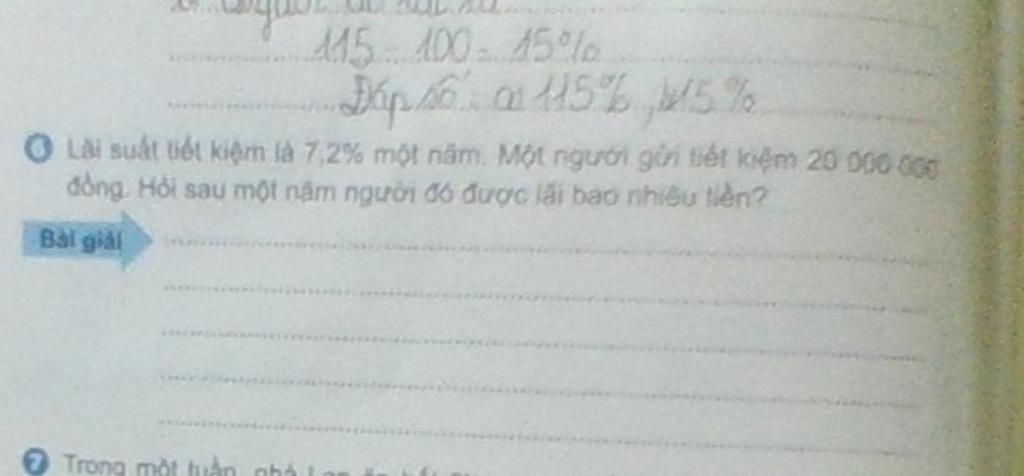 115 - 100 = 15%
Đáp số: a) 115%, b) 15%
6 Lãi suất tiết kiệm là 7,2% một năm. Một người gửi tiết kiệm 20 000 000
đồng. Hỏi sau một năm người đó được lãi bao nhiêu tiền?
Bài giải
7 Trong một tuần, nhà Lan ăn hết